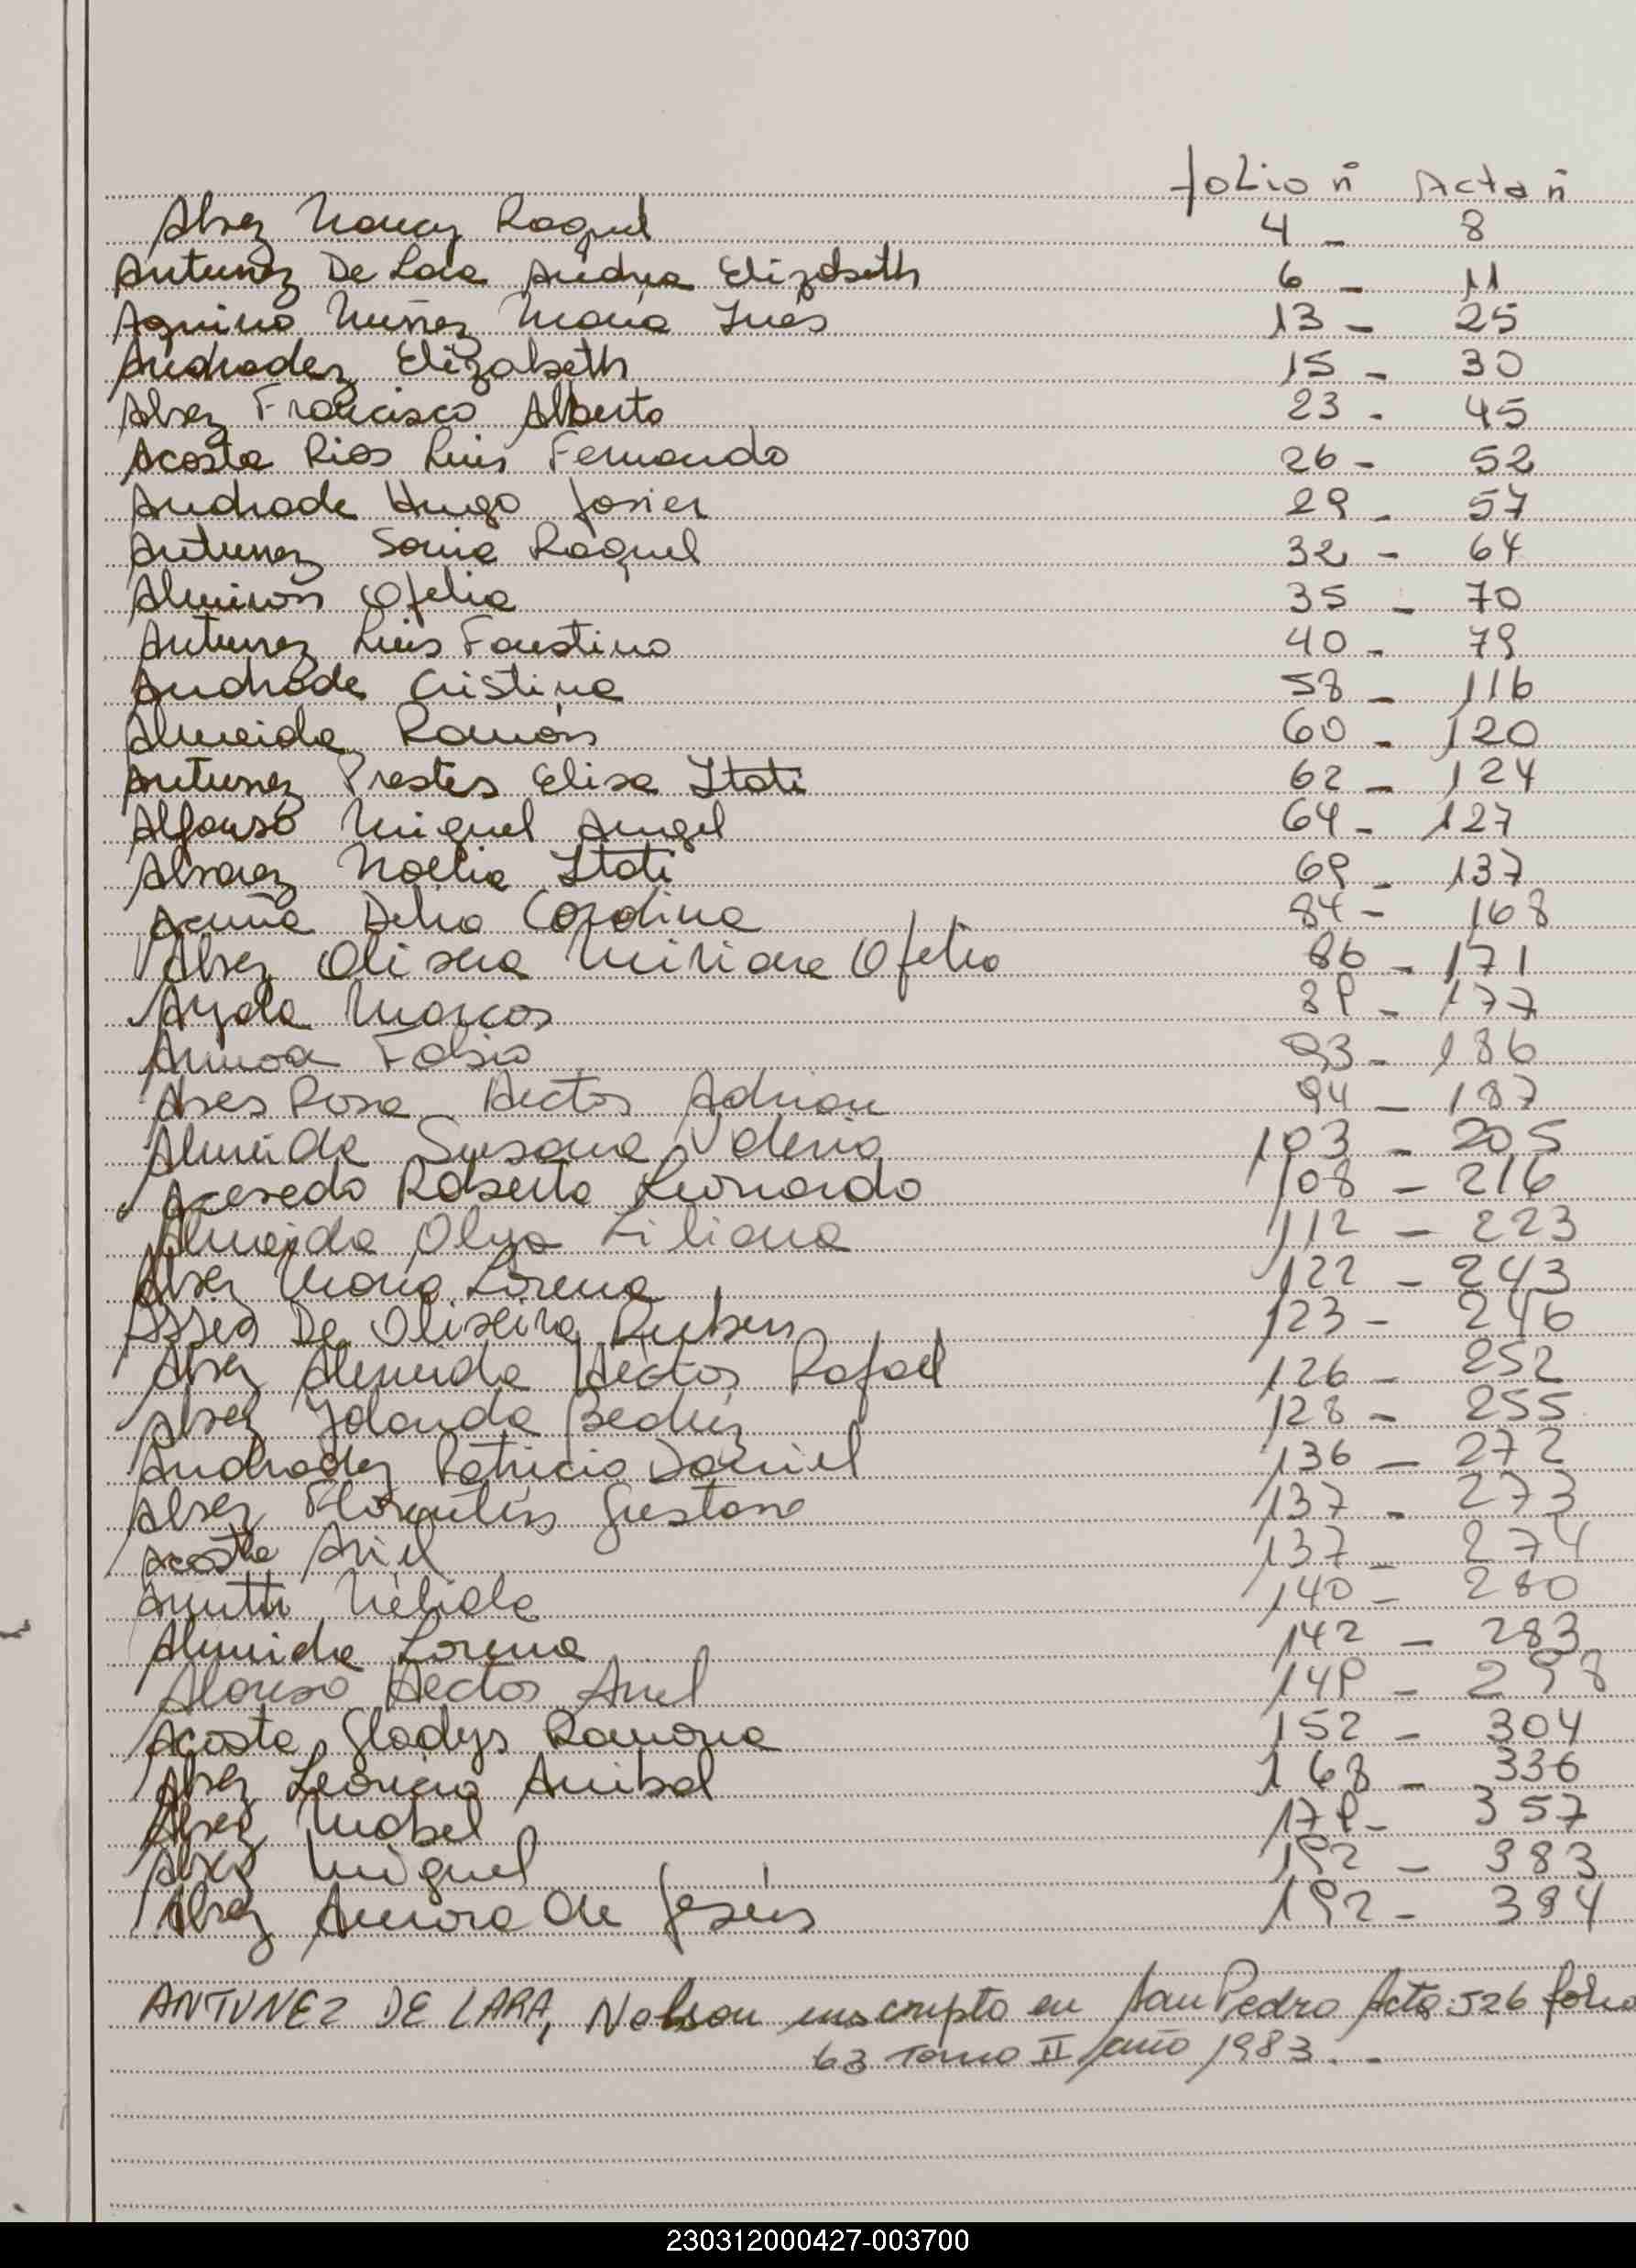 folio nº Acta nº
Alvez Nancy Raquel 4 - 8
Antunez De Lara Andrea Elizabeth 6 - 11
Aquino Nuñez Maria Ines 13 - 25
Andradez Elizabeth 15 - 30
Alvez Francisco Alberto 23 - 45
Acosta Rios Luis Fernando 26 - 52
Andrade Hugo Javier 29 - 57
Antunez Sonia Raquel 32 - 64
Almirón Ofelia 35 - 70
Antunez Luis Faustino 40 - 79
Andrade Cristina 58 - 116
Almeida Ramón 60 - 120
Antunez Prestes Elisa Itati 62 - 124
Alfonso Miguel Angel 64 - 127
Alvarez Noelia Itati 69 - 137
Acuña Delia Carolina 84 - 168
Alvez Olivera Miriam Ofelia 86 - 171
Ayala Marcos 89 - 177
Fabio 93 - 186
Alves Rosa Hector Adrian 94 - 187
Almeida Susana Valeria 103 - 205
Acevedo Roberto Leonardo 108 - 216
Almeida Olga Liliana 112 - 223
Alvez Maria Lorena 122 - 243
De Oliveira Ruben 123 - 246
Alvez Almeida Hector Rafael 126 - 252
Alvez Yolanda Beatriz 128 - 255
Andradez Patricio Daniel 136 - 272
Alvez Florentin Gustavo 137 - 273
Acosta Ariel 137 - 274
Nélida 140 - 280
Almeida Lorena 142 - 283
Alonso Hector Ariel 149 - 298
Acosta Gladys Ramona 152 - 304
Alvez Leoncio Anibal 168 - 336
Alvez Mabel 179 - 357
Alvez Miguel 192 - 383
Alvez Aurora de Jesús 192 - 384
ANTUNEZ DE LARA, Nelson inscripto en San Pedro Acta 526 folio
63 Tomo II año 1983. -
230312000427-003700